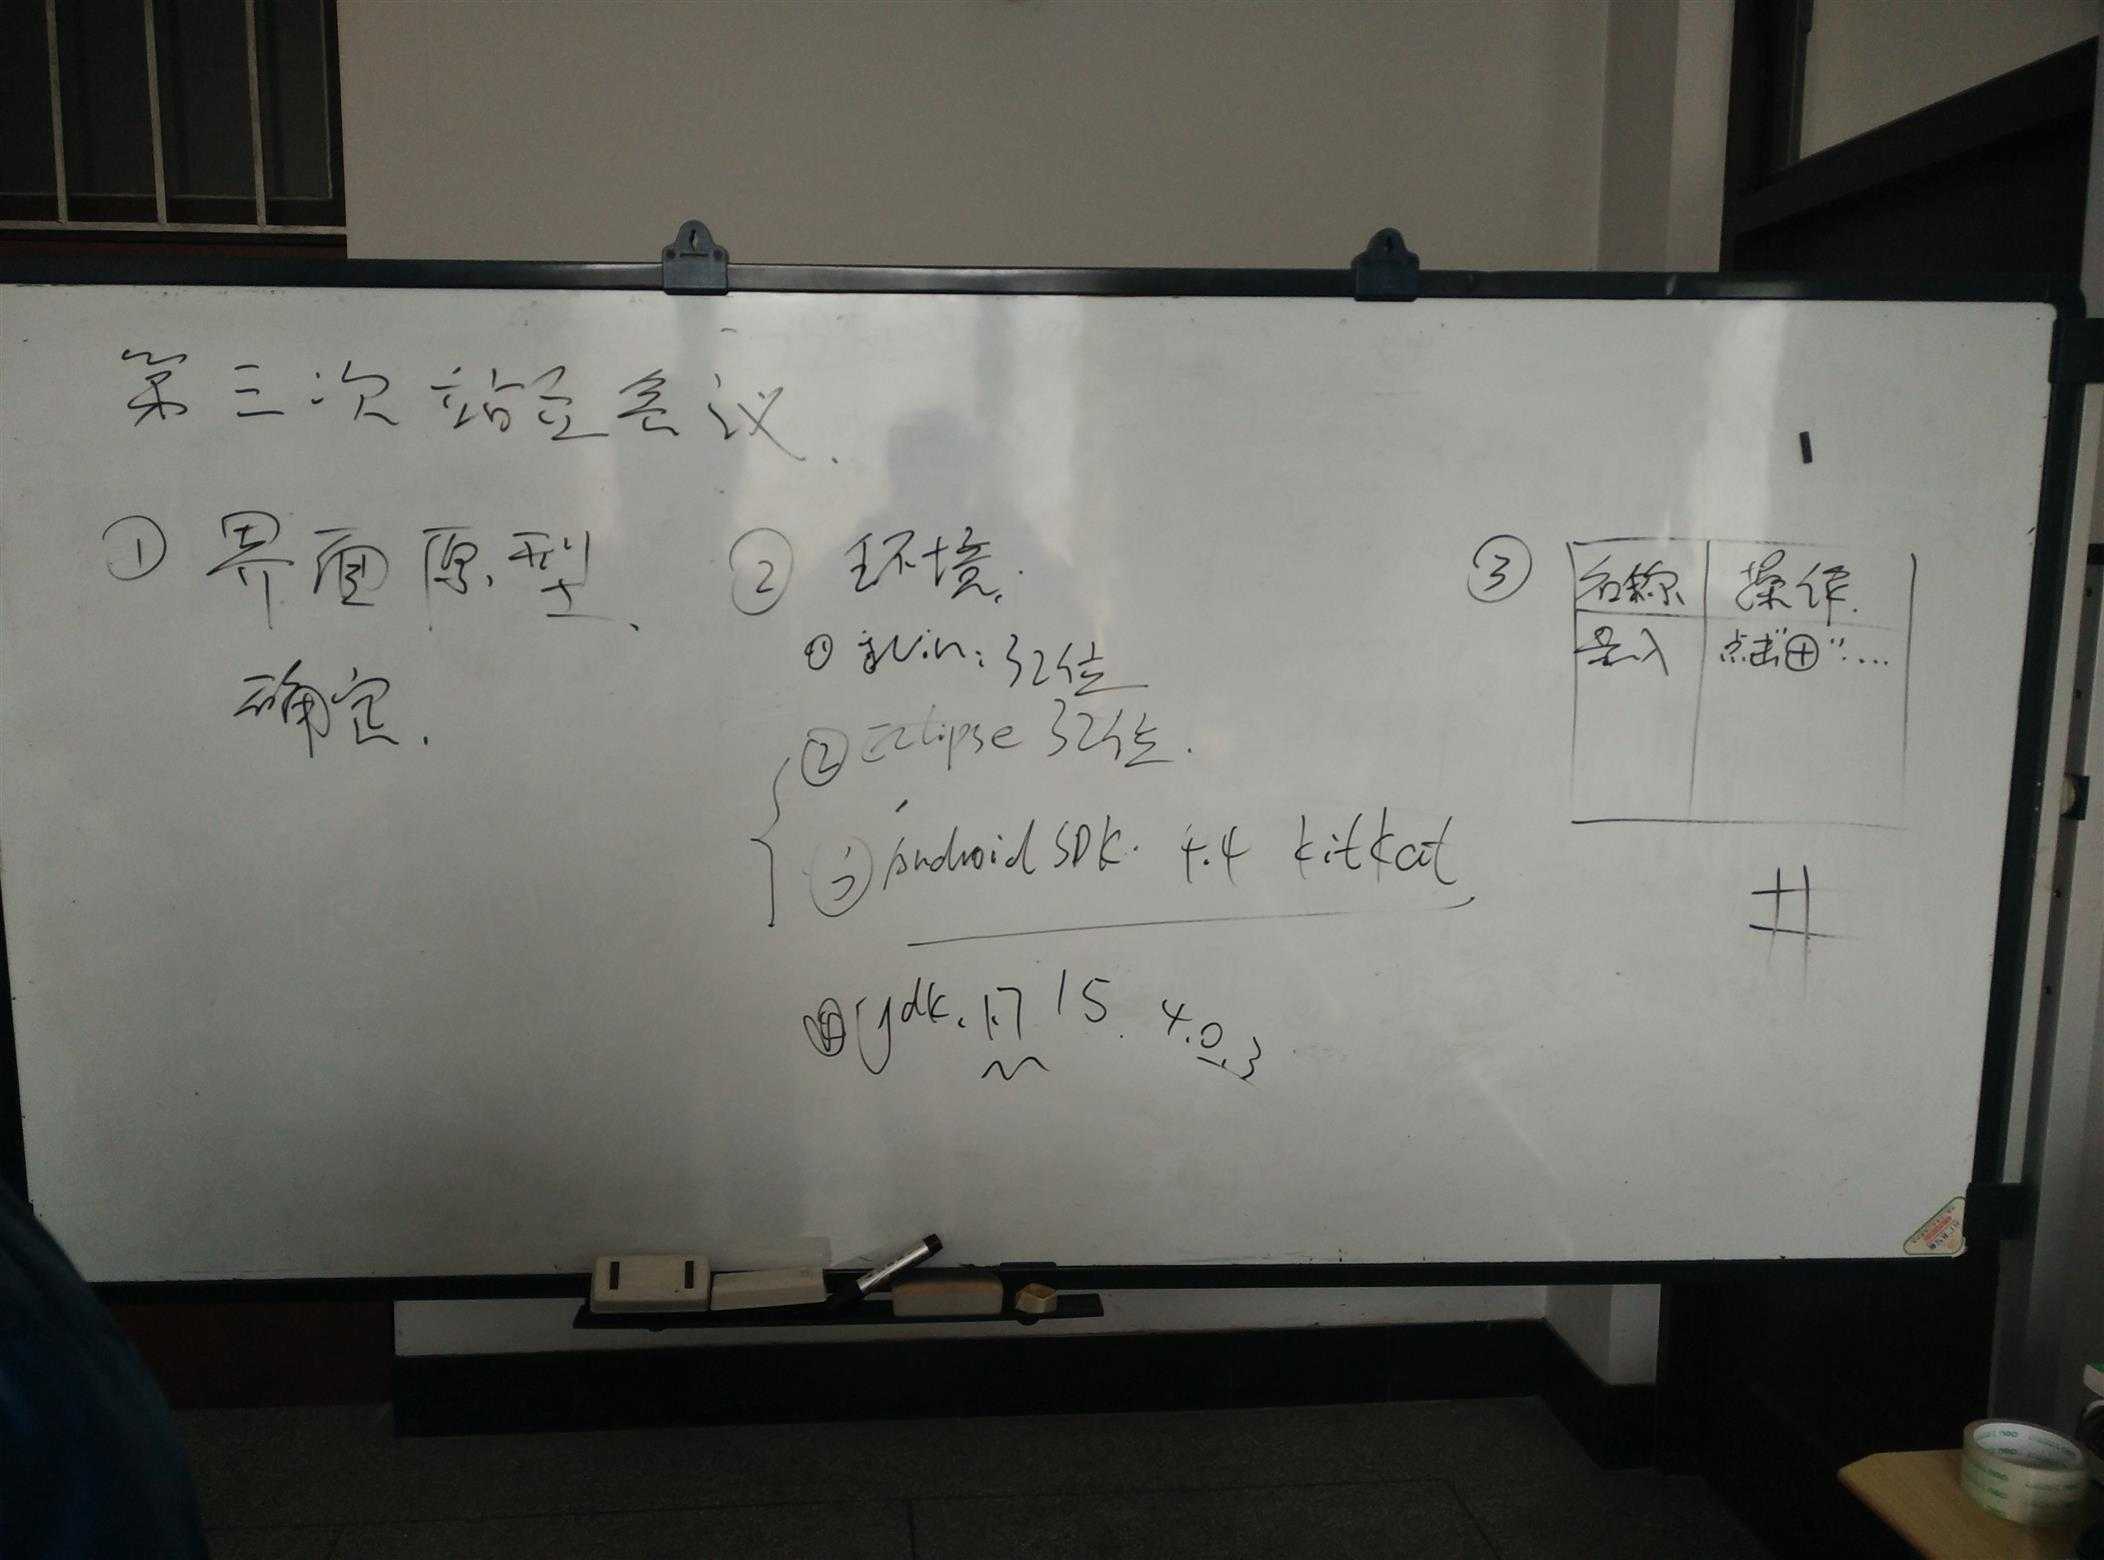 第三次站立会议.
① 界面原型、
确定.
② 环境.
① Win: 32位
② Eclipse 32位.
③ Android SDK. 4.4 kitkat
④ jdk. 1.7 15. 4.0.3
③
名称 操作.
录入 点击"⊕"...